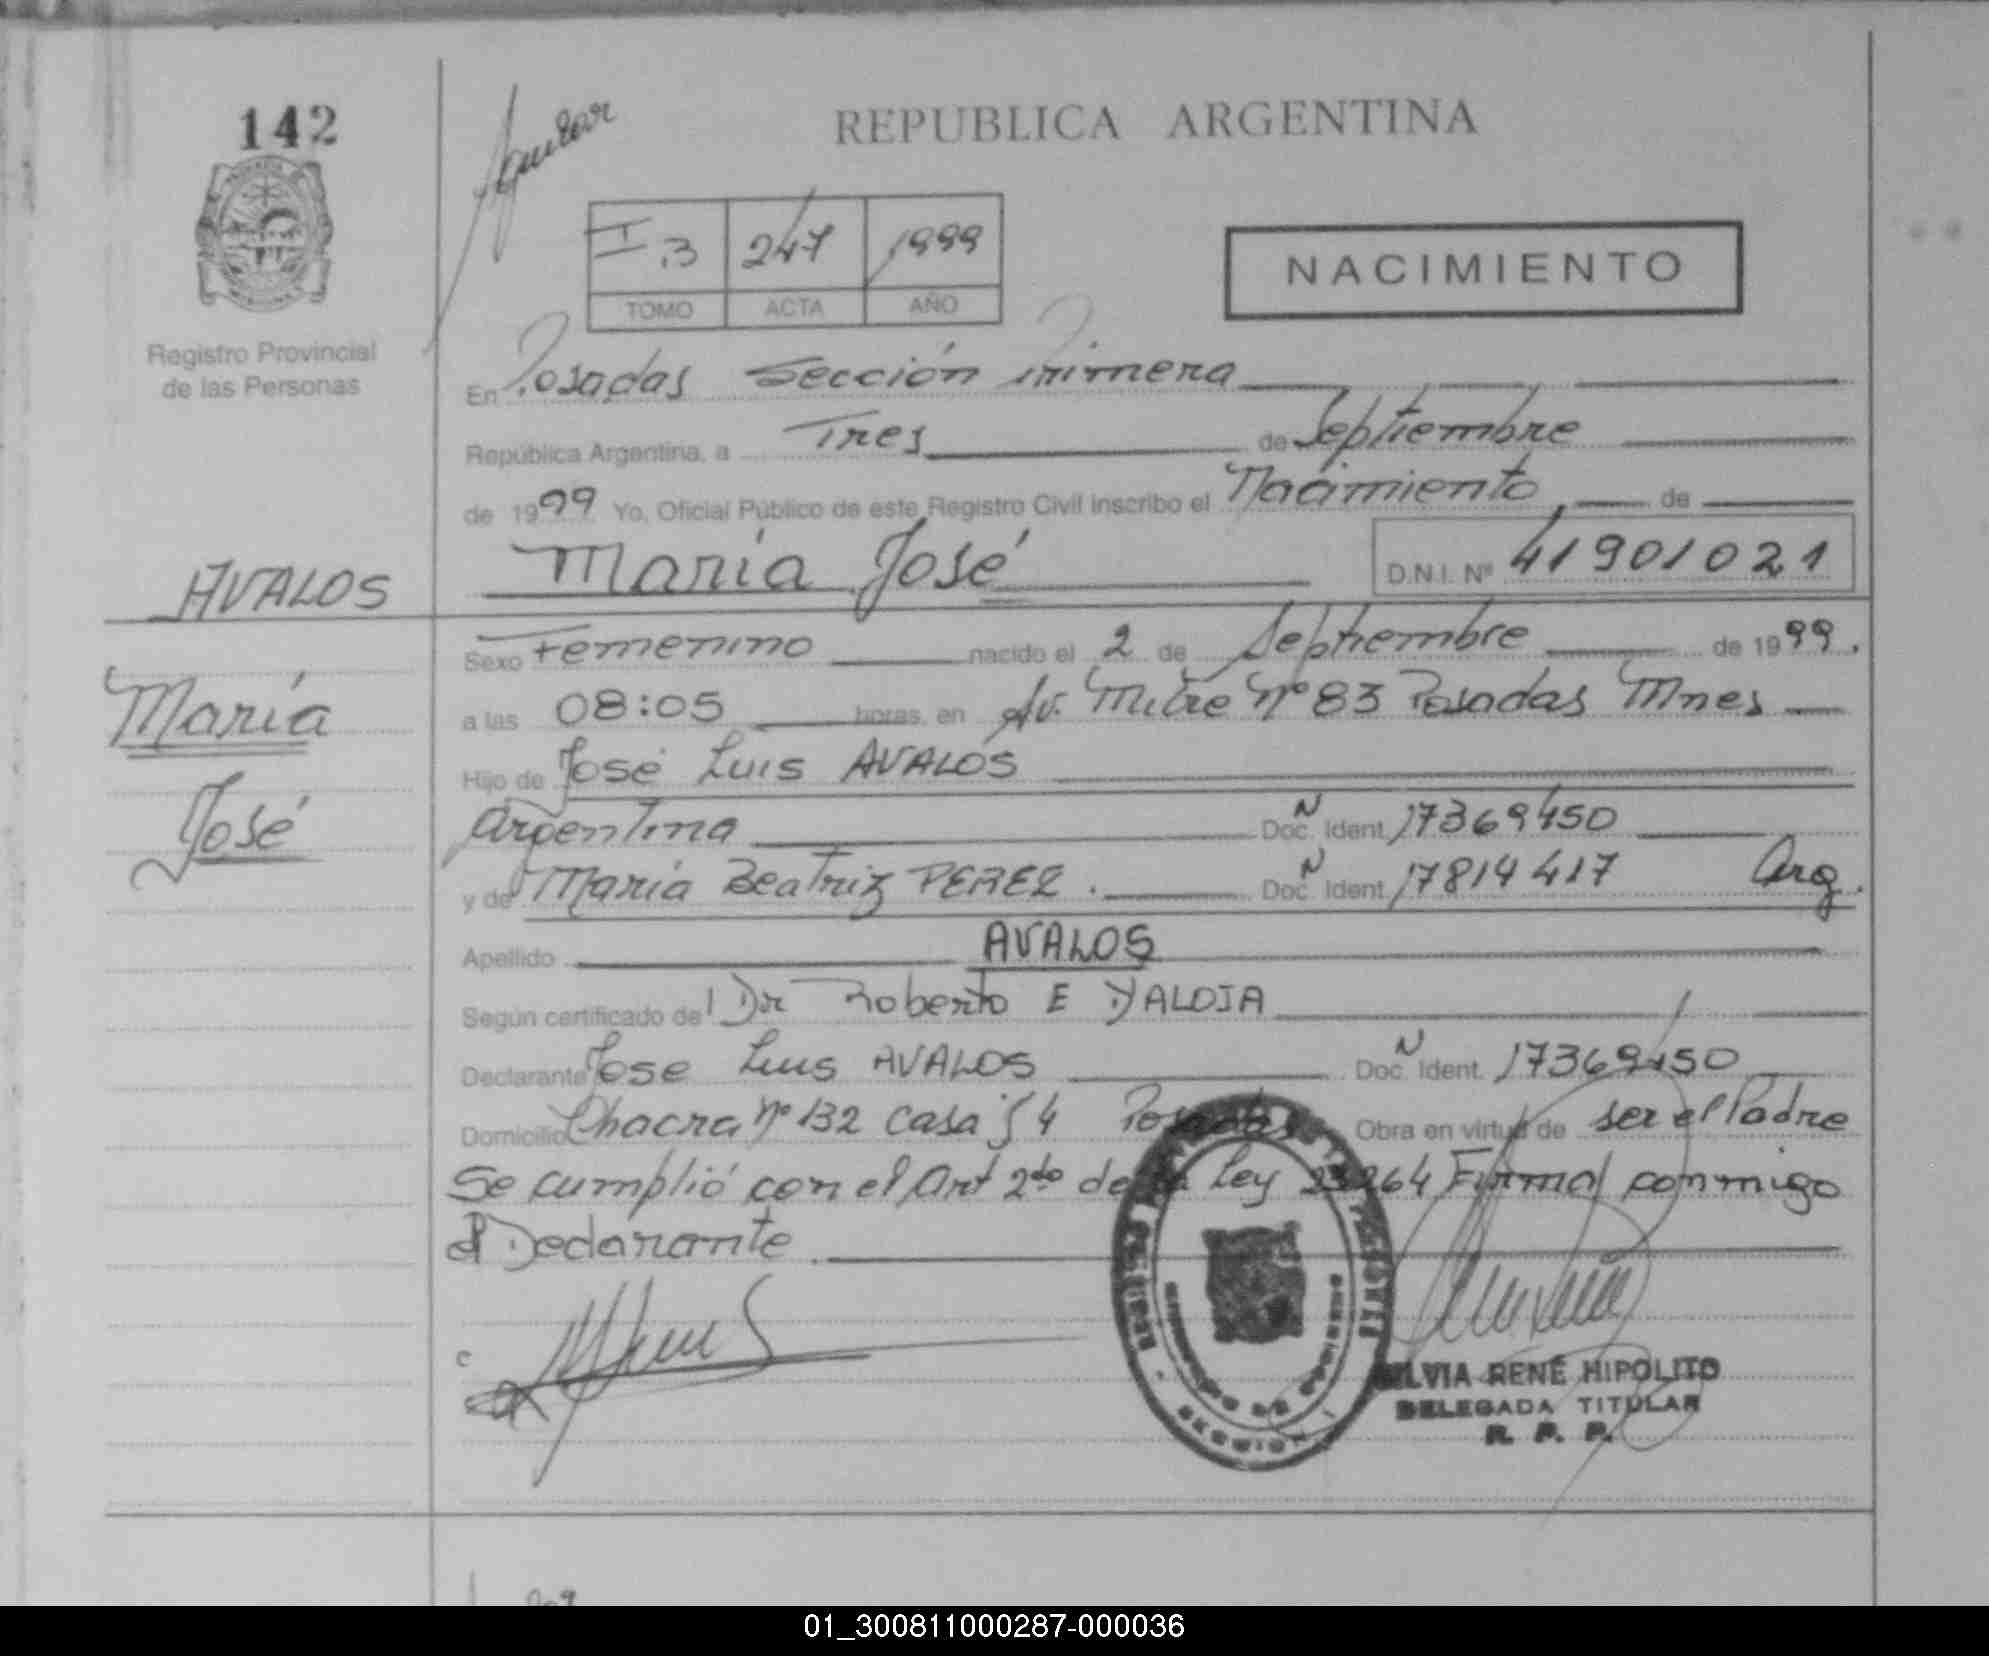 142
Aguilar
REPUBLICA ARGENTINA
I 3 247 1999
TOMO ACTA AÑO
NACIMIENTO
Registro Provincial
de las Personas
En Posadas Sección Primera
República Argentina, a Tres de Septiembre
de 1999 Yo, Oficial Público de este Registro Civil inscribo el Nacimiento de
María José D.N.I. Nº 41901021
AVALOS
María
José
Sexo Femenino nacido el 2 de Septiembre de 1999.
a las 08:05 horas, en Av. Mitre Nº 83 Posadas Mnes
Hijo de José Luis AVALOS
Argentina Doc. Ident. N 17369450
y de María Beatriz PEREZ. Doc. Ident. N 17814417 Arg.
Apellido AVALOS
Según certificado del Dr Roberto E
Declarante Jose Luis AVALOS Doc. Ident. N 17369450
Domicilio Chacra Nº 132 casa 4 Posadas Obra en virtud de ser el Padre
Se cumplió con el Art 2do de la Ley 23264 Firma conmigo
el Declarante
SILVIA RENÉ HIPOLITO
DELEGADA TITULAR
R. P. P.
01_300811000287-000036